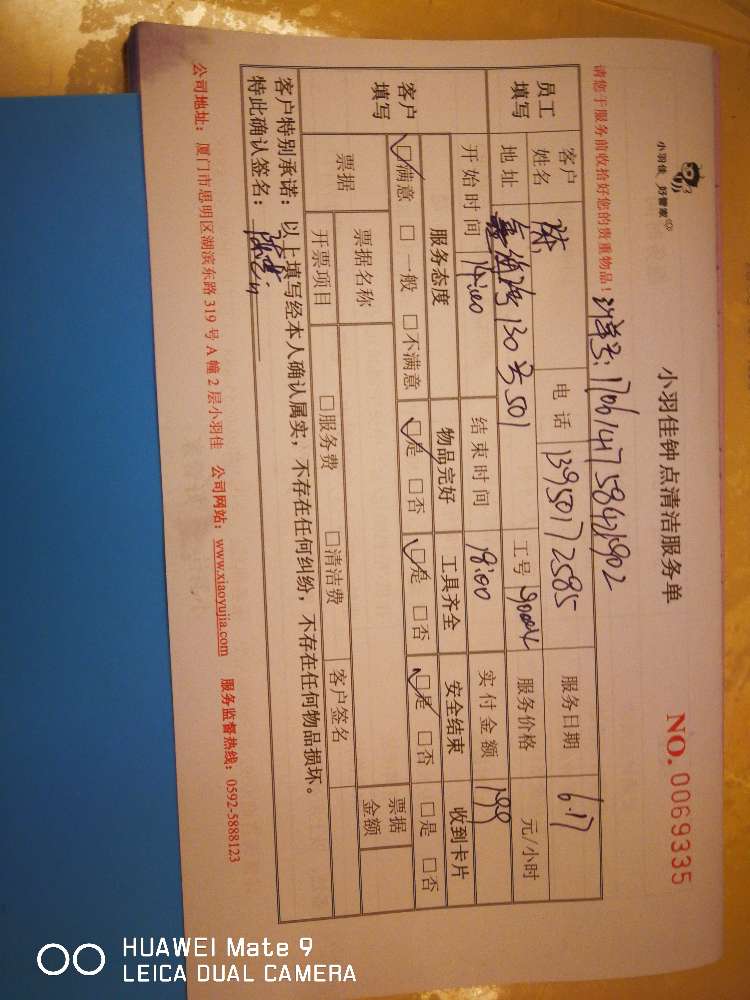 小羽佳 好管家
小羽佳钟点清洁服务单
NO. 0069335
请您于服务前收拾好您的贵重物品！
员工填写
客户姓名 陈 电话 13950172585 服务日期 6.17
地址 130号501 工号 服务价格 元/小时
开始时间 14:00 结束时间 18:00 实付金额 199
客户填写
服务态度 物品完好 工具齐全 安全结束 收到卡片
☑满意 □一般 □不满意 ☑是 □否 ☑是 □否 ☑是 □否 □是 □否
票据 票据名称 票据金额
开票项目 □服务费 □清洁费 客户签名
客户特别承诺：以上填写经本人确认属实，不存在任何纠纷，不存在任何物品损坏。
特此确认签名：
公司地址：厦门市思明区湖滨东路 319 号 A 幢 2 层小羽佳 公司网站：www.xiaoyujia.com 服务监督热线：0592-5888123
HUAWEI Mate 9
LEICA DUAL CAMERA